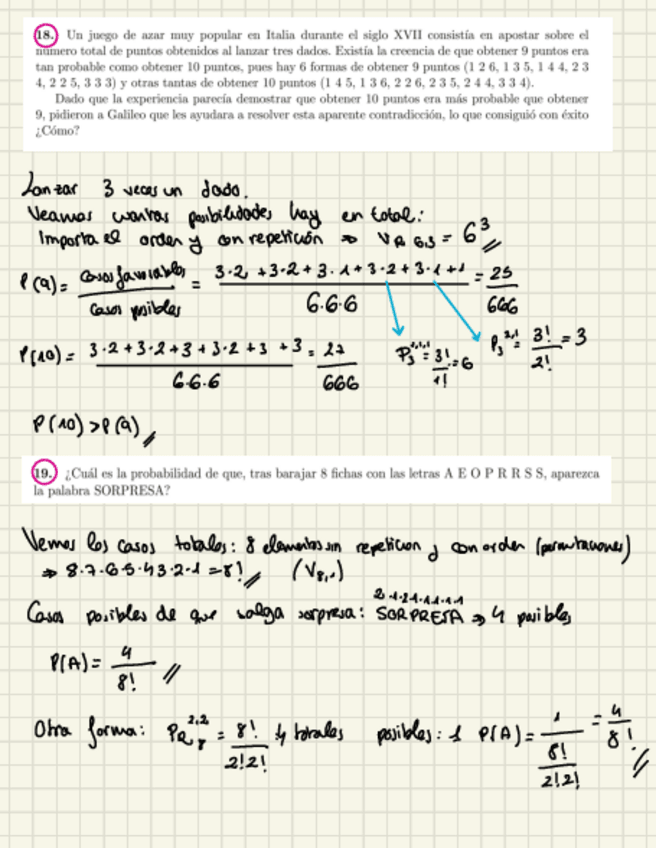 18. Un juego de azar muy popular en Italia durante el siglo XVII consistía en apostar sobre el
número total de puntos obtenidos al lanzar tres dados. Existía la creencia de que obtener 9 puntos era
tan probable como obtener 10 puntos, pues hay 6 formas de obtener 9 puntos (1 2 6, 1 3 5, 1 4 4, 2 3
4, 2 2 5, 3 3 3) y otras tantas de obtener 10 puntos (1 4 5, 1 3 6, 2 2 6, 2 3 5, 2 4 4, 3 3 4).
Dado que la experiencia parecía demostrar que obtener 10 puntos era más probable que obtener
9, pidieron a Galileo que les ayudara a resolver esta aparente contradicción, lo que consiguió con éxito
¿Cómo?
Lanzar 3 veces un dado.
Veamos cuantas posibilidades hay en total:
Importa el orden y con repetición ⇒ VR 6,3 = 6³
P(9) = casos favorables / casos posibles = 3·2 + 3·2 + 3·1 + 3·2 + 3·1 + 1 / 6·6·6 = 25 / 666
P(10) = 3·2 + 3·2 + 3 + 3·2 + 3 + 3 / 6·6·6 = 27 / 666
P₃^1,1,1 = 3! / 1! = 6
P₃^2,1 = 3! / 2! = 3
P(10) > P(9)
19. ¿Cuál es la probabilidad de que, tras barajar 8 fichas con las letras A E O P R R S S, aparezca
la palabra SORPRESA?
Vemos los casos totales: 8 elementos sin repeticion y con orden (permutaciones)
⇒ 8·7·6·5·4·3·2·1 = 8! (V8,8)
Casos posibles de que salga sorpresa: SORPRESA ⇒ 4 posibles
2·1·2·1·1·1·1·1
P(A) = 4 / 8!
Otra forma: PR₈^2,2 = 8! / 2!2! totales posibles: 1 P(A) = 1 / (8! / 2!2!) = 4 / 8!